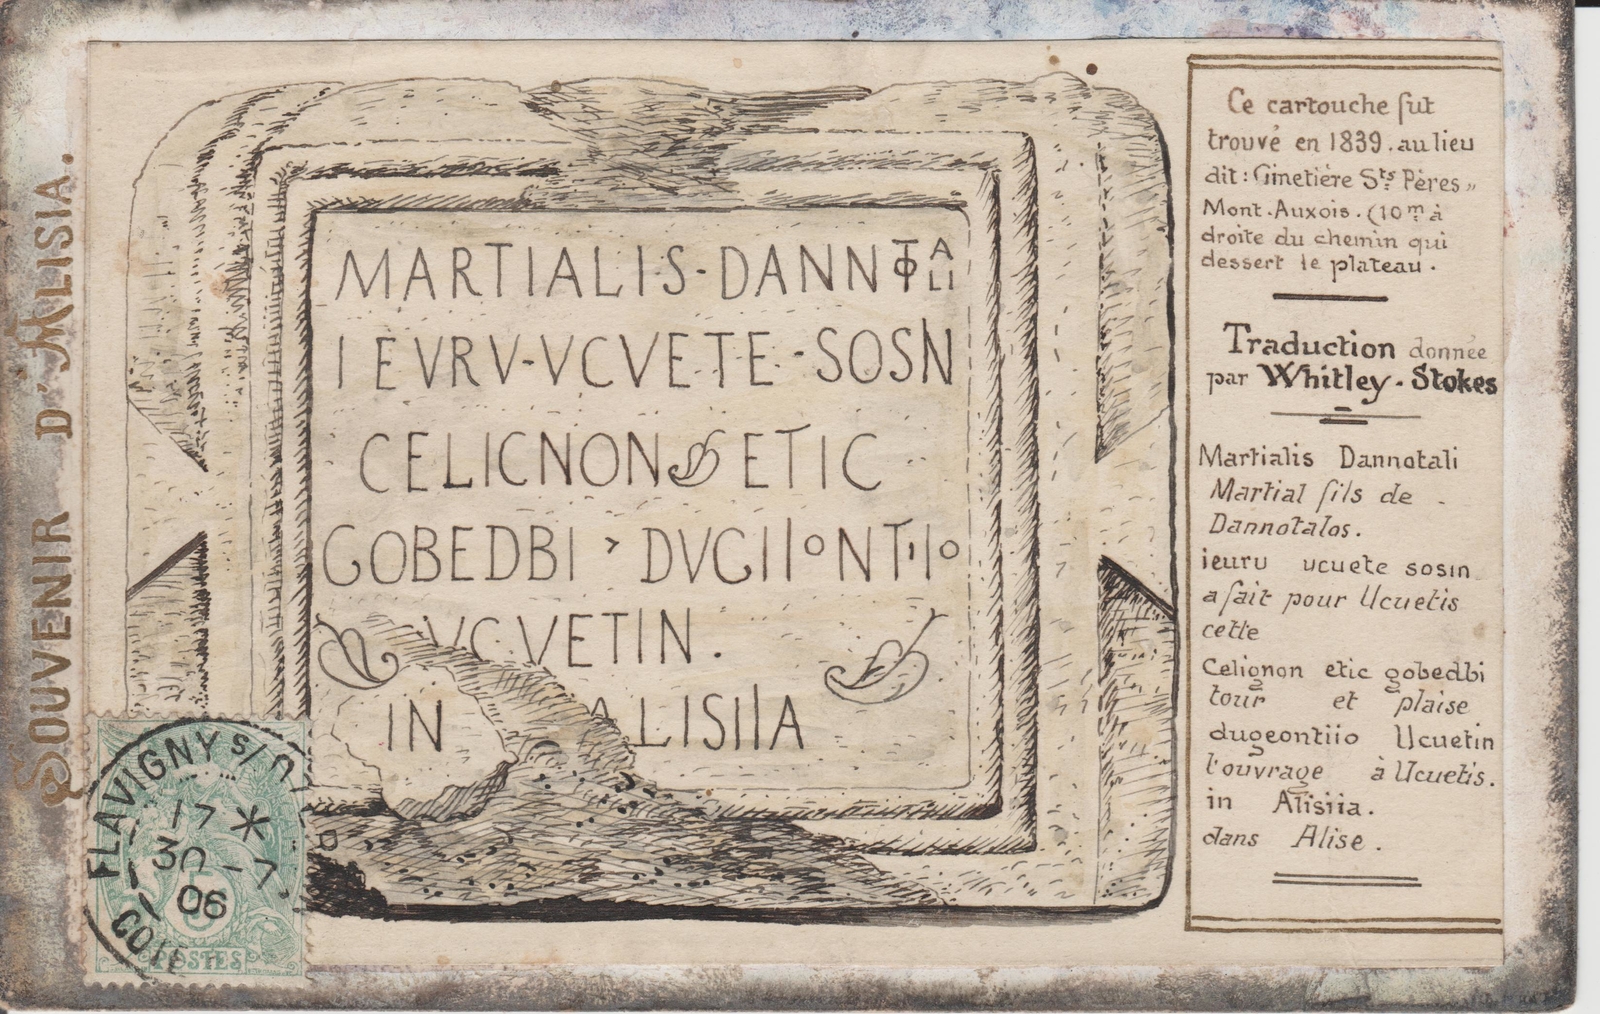 SOUVENIR D'ALISIA.
MARTIALIS·DANNOTALI
IEVRV·VCVETE·SOSIN
CELICNON ETIC
GOBEDBI › DVGIIONTIIO
VCVETIN.
IN ALISIIA
Ce cartouche fut
trouvé en 1839. au lieu
dit: Cimetière Sts Pères„
Mont-Auxois. (10m à
droite du chemin qui
dessert le plateau.
Traduction donnée
par Whitley-Stokes
Martialis Dannotali
Martial fils de
Dannotalos.
ieuru ucuete sosin
a fait pour Ucuetis
cette
Celignon etic gobedbi
tour et plaise
dugeontiio Ucuetin
l'ouvrage à Ucuetis.
in Alisiia.
dans Alise.
FLAVIGNY S/O
17 *
30 -7
06
POSTES